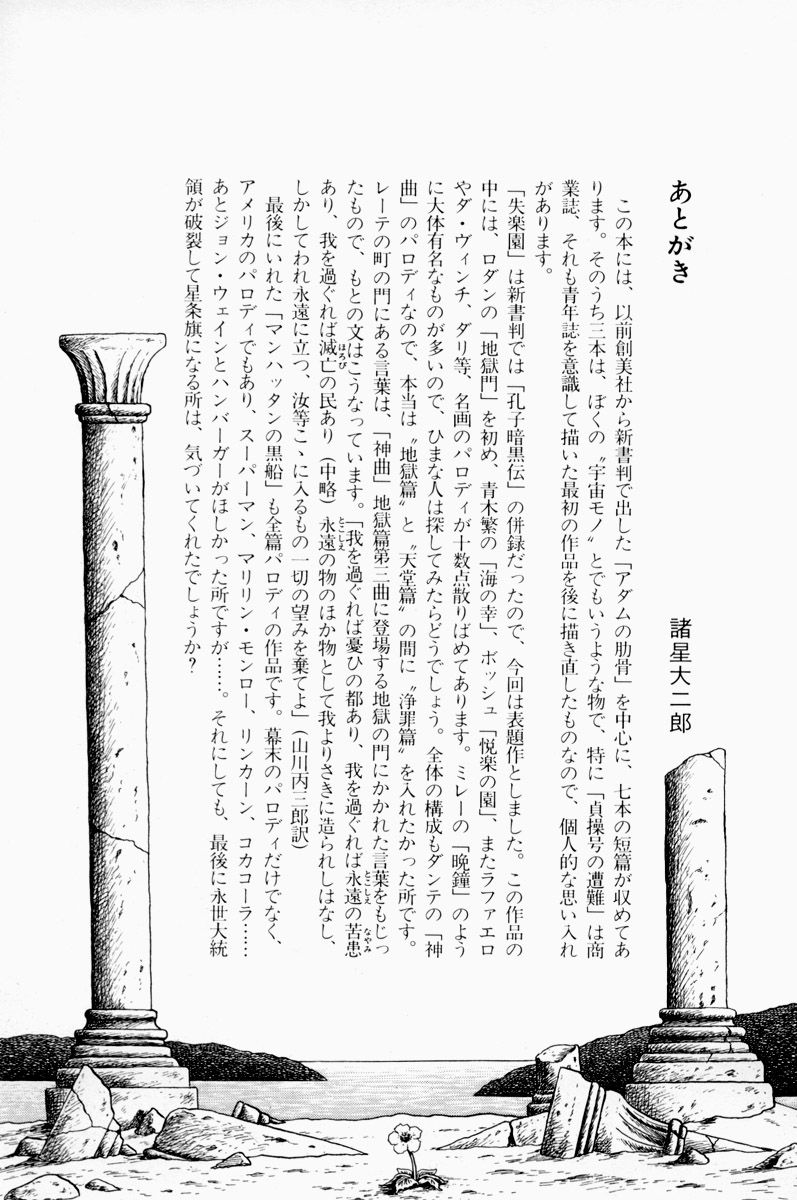 あとがき
諸星大二郎
この本には、以前創美社から新書判で出した「アダムの肋骨」を中心に、七本の短篇が収めてあ
ります。そのうち三本は、ぼくの〝宇宙モノ〟とでもいうような物で、特に「貞操号の遭難」は商
業誌、それも青年誌を意識して描いた最初の作品を後に描き直したものなので、個人的な思い入れ
があります。
「失楽園」は新書判では「孔子暗黒伝」の併録だったので、今回は表題作としました。この作品の
中には、ロダンの「地獄門」を初め、青木繁の「海の幸」、ボッシュ「悦楽の園」、またラファエロ
やダ・ヴィンチ、ダリ等、名画のパロディが十数点散りばめてあります。ミレーの「晩鐘」のよう
に大体有名なものが多いので、ひまな人は探してみたらどうでしょう。全体の構成もダンテの「神
曲」のパロディなので、本当は〝地獄篇〟と〝天堂篇〟の間に〝浄罪篇〟を入れたかった所です。
レーテの町の門にある言葉は、「神曲」地獄篇第三曲に登場する地獄の門にかかれた言葉をもじっ
たもので、もとの文はこうなっています。「我を過ぐれば憂ひの都あり、我を過ぐれば永遠の苦患
とこしえ
なやみ
あり、我を過ぐれば滅亡の民あり（中略）永遠の物のほか物として我よりさきに造られしはなし、
ほろび
とこしえ
しかしてわれ永遠に立つ、汝等こゝに入るもの一切の望みを棄てよ」（山川丙三郎訳）
最後にいれた「マンハッタンの黒船」も全篇パロディの作品です。幕末のパロディだけでなく、
アメリカのパロディでもあり、スーパーマン、マリリン・モンロー、リンカーン、コカコーラ……
あとジョン・ウェインとハンバーガーがほしかった所ですが……。それにしても、最後に永世大統
領が破裂して星条旗になる所は、気づいてくれたでしょうか？